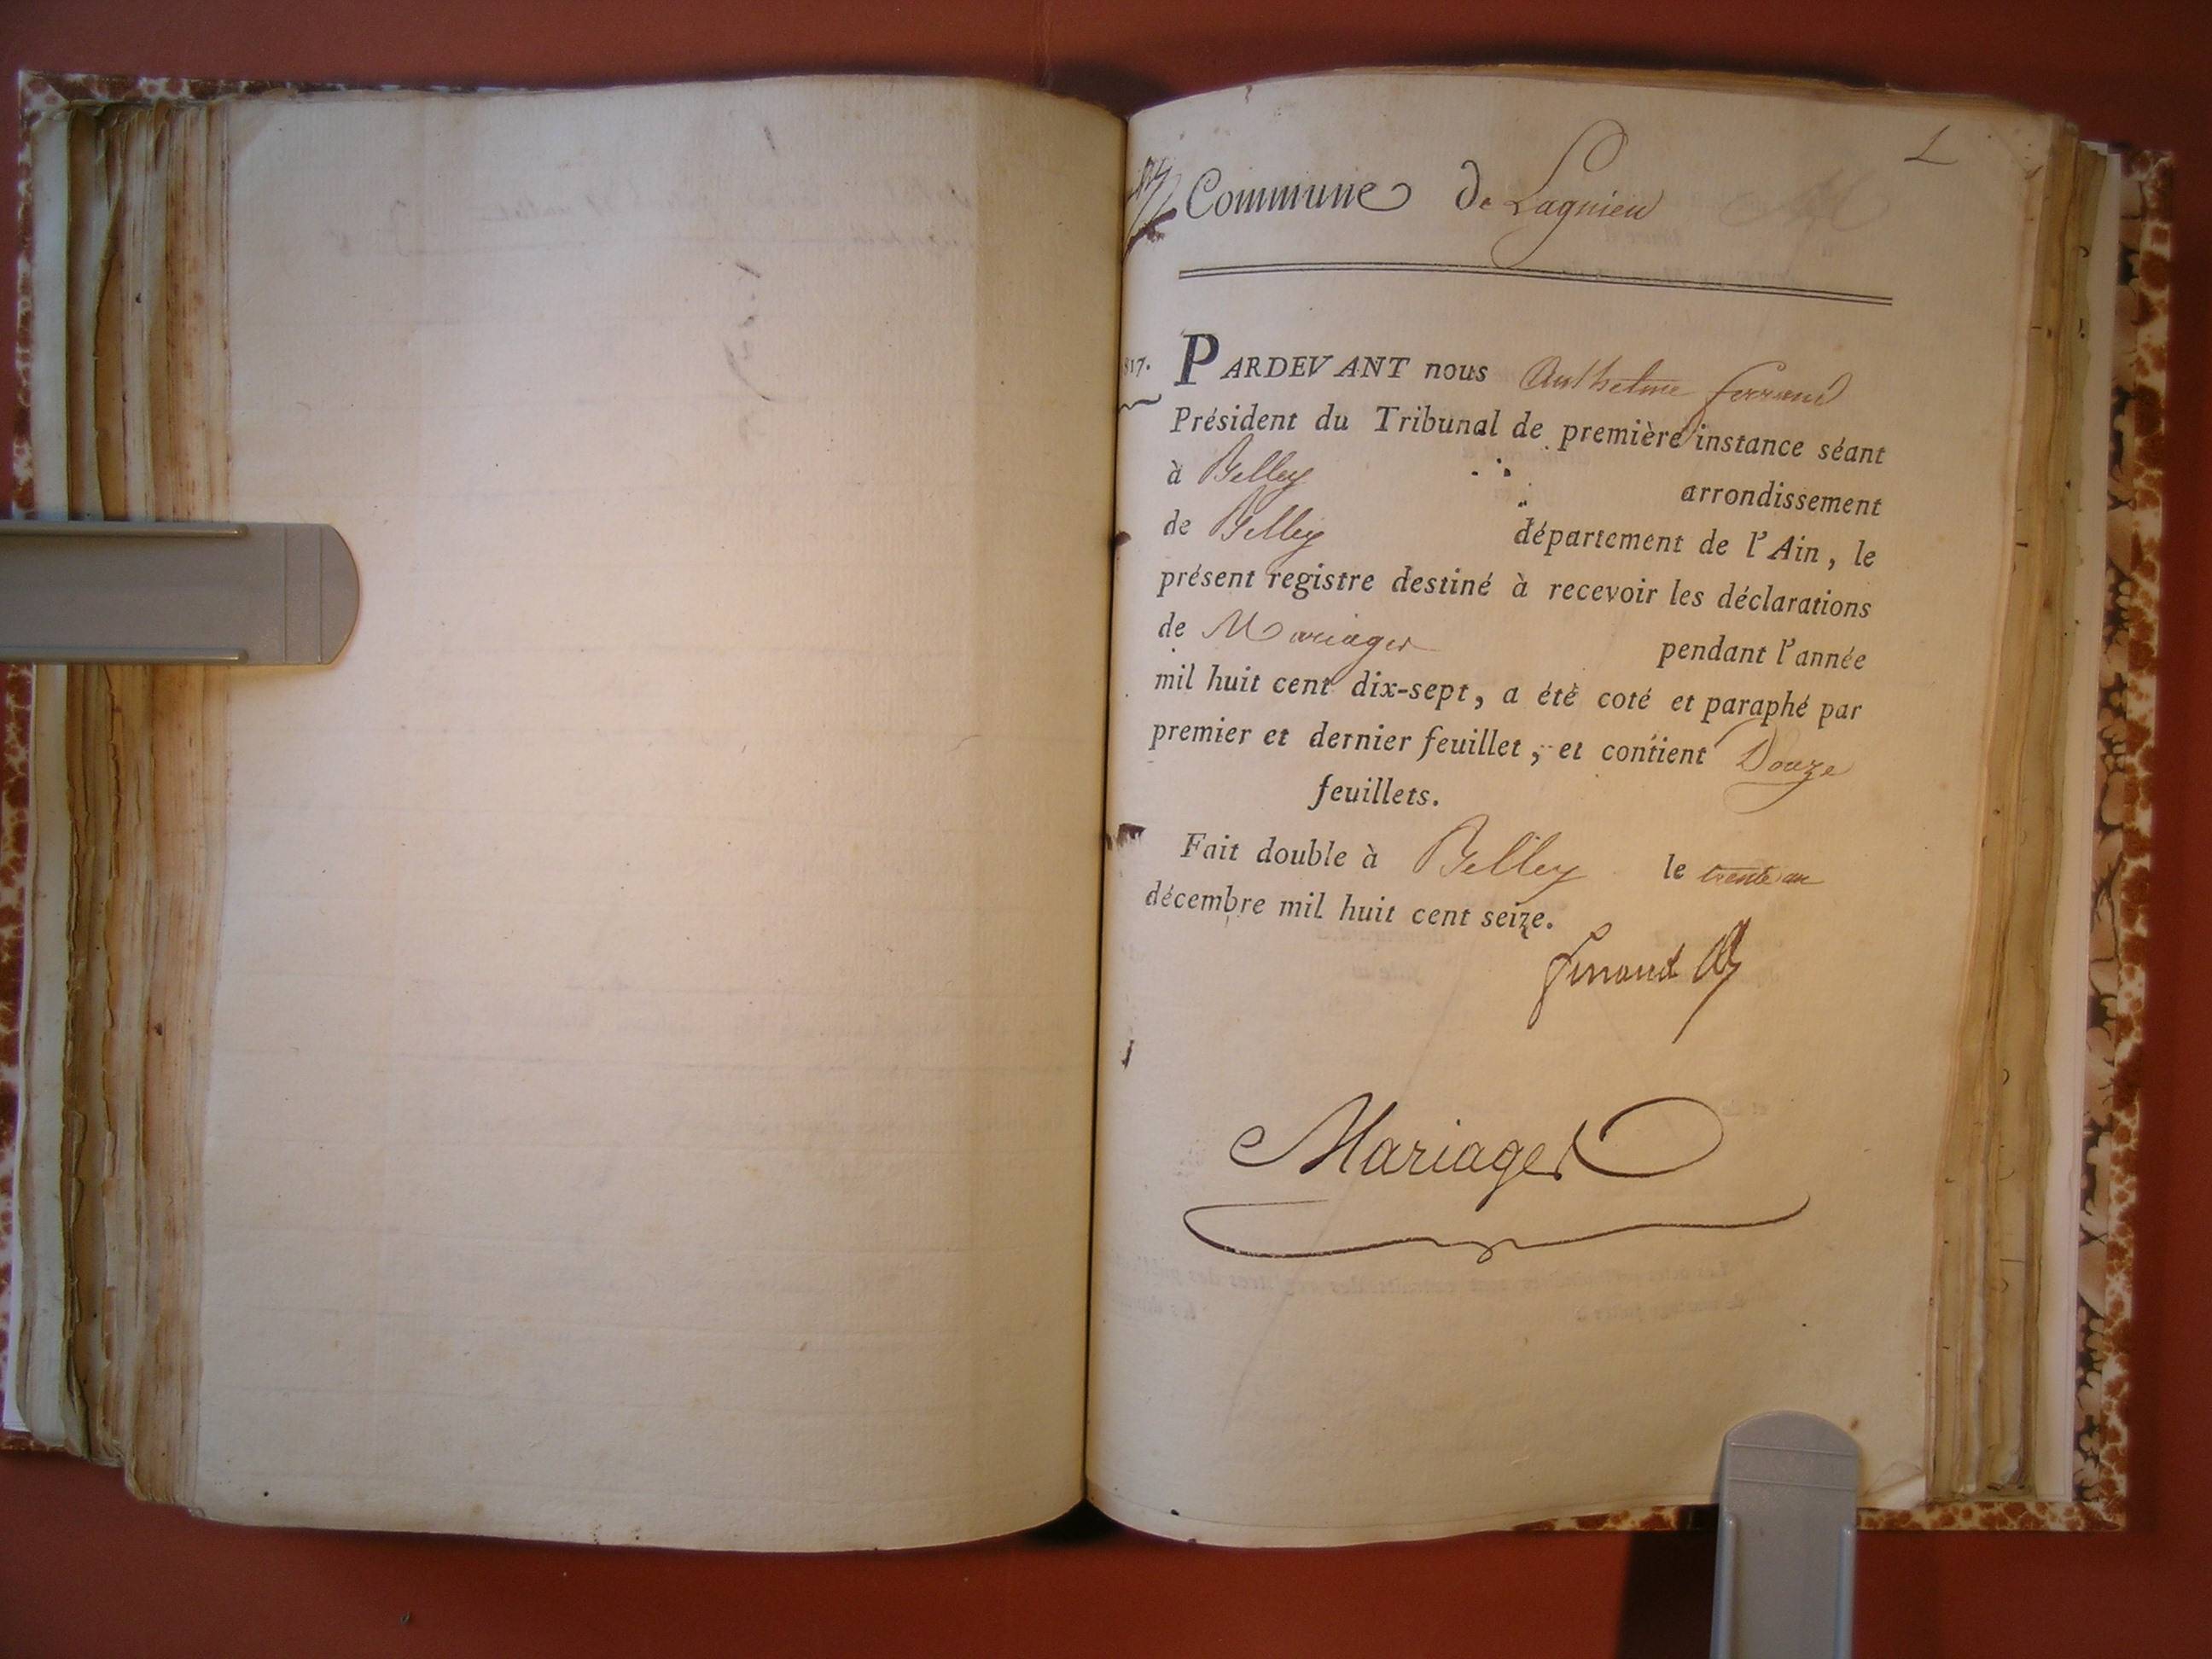 Commune de Lagnieu
817. PARDEVANT nous Anthelme ferrand
Président du Tribunal de première instance séant
à Belley arrondissement
de Belley département de l'Ain, le
présent registre destiné à recevoir les déclarations
de Mariages pendant l'année
mil huit cent dix-sept, a été coté et paraphé par
premier et dernier feuillet, et contient Douze
feuillets.
Fait double à Belley le trente un
décembre mil huit cent seize.
ferrand
Mariages